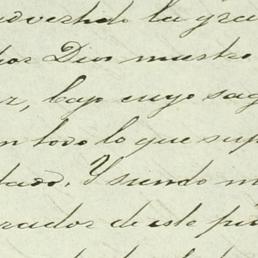 advertido la gra
por Dios nuestro
r, bajo cuyo sag
n todo lo que sup
tado. Y siendo m
rador de este pu